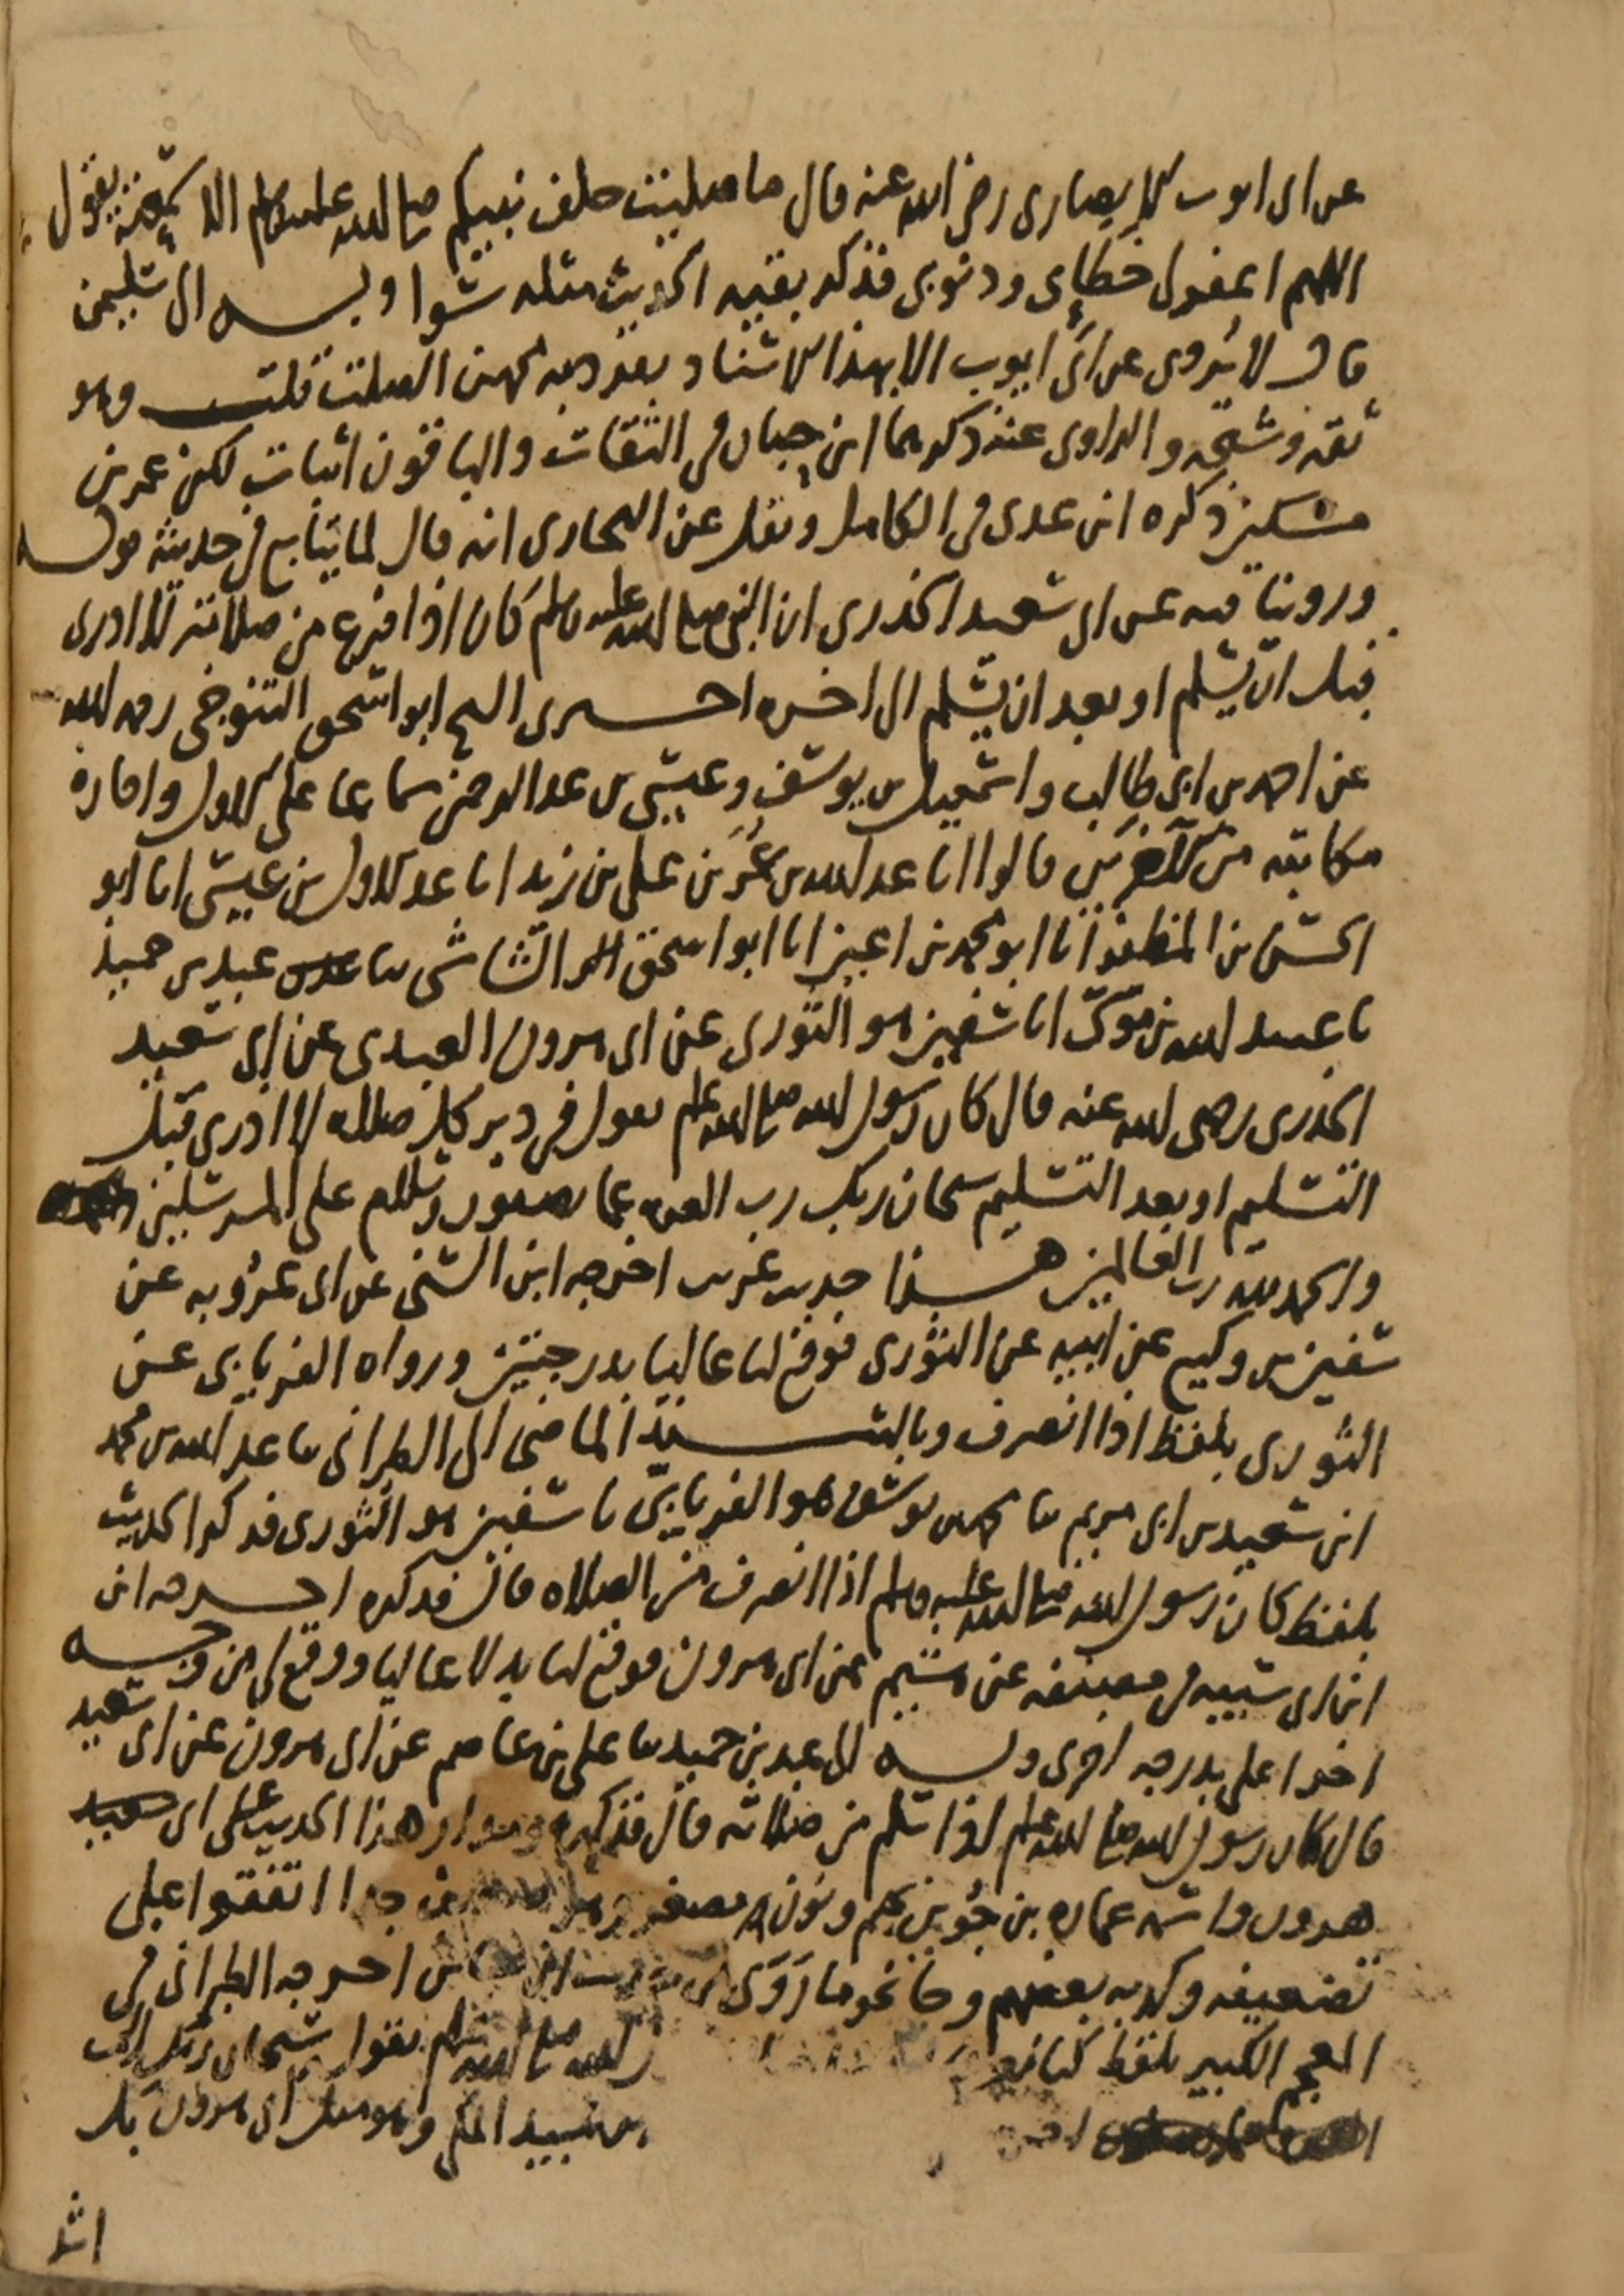 عن ابى ايوب الانصارى رضى الله عنه قال ما صليت خلف نبيكم صلى الله عليه وسلم الا سمعته يقول
اللهم اغفر لى خطاىاى وذنوبى فذكر بقية الحديث مثله سوا وبه الى سليمن
قال لا يروى عن ابى ايوب الا بهذا الاسناد تفرد به محمد بن الصلت قلت وهو
ثقة وشيخه والراوى عنه ذكرهما ابن حبان فى الثقات والباقون اثبات لكن عمر بن
مسكين ذكره ابن عدى فى الكامل ونقل عن البخارى انه قال لا يتابع فى حديثه قوله
وروينا فيه عن ابى سعيد الخدرى ان النبى صلى الله عليه وسلم كان اذا فرغ من صلاته لا ادرى
قبل ان يسلم او بعد ان يسلم الى اخره اخبرنى الشيخ ابو اسحق التنوخى رحمه الله
عن احمد بن ابى طالب واسمعيل بن يوسف وعيسى بن عبد الرحمن سماعا على الاول واجازة
مكاتبة من الاخرين قالوا انا عبد الله بن عمر بن على بن زيد انا عبد الاول بن عيسى انا ابو
الحسن بن المظفر انا ابو محمد بن اعين انا ابو اسحق الشاشى ثنا عبد بن حميد
ثنا عبيد الله بن موسى انا سفين هو الثورى عن ابى هرون العبدى عن ابى سعيد
الخدرى رضى الله عنه قال كان رسول الله صلى الله عليه وسلم يقول فى دبر كل صلاة لا ادرى قبل
التسليم او بعد التسليم سبحان ربك رب العزة عما يصفون وسلام على المرسلين
والحمد لله رب العالمين هذا حديث غريب اخرجه ابن السنى عن ابى عروبه عن
سفين بن وكيع عن ابيه عن الثورى فوقع لنا عاليا بدرجتين ورواه الفريابى عن
الثورى بلفظ اذا انصرف وبالسند الماضى الى الطبرانى ثنا عبد الله بن محمد
ابن سعيد بن ابى مريم ثنا محمد بن يوسف هو الفريابى ثنا سفين هو الثورى فذكر الحديث
بلفظ كان رسول الله صلى الله عليه وسلم اذا انصرف من الصلاه قال فذكره اخرجه ابن
ابن ابى شيبه فى مصنفه عن هشيم عن ابى هرون فوقع لنا بدلا عاليا ووقع لى من وجه
اخر اعلى بدرجه اخرى وبه الى عبد بن حميد ثنا على بن عاصم عن ابى هرون عن ابى سعيد
قال كان رسول الله صلى الله عليه وسلم اذا سلم من صلاته قال فذكره ومدار هذا الحديث على ابى
هرون واسمه عمارة بن جوين بجيم ونون مصغر وهو ضعيف جدا اتفقوا على
تضعيفه وكذبه بعضهم وجا نحو ما روى من حديث ابن عباس اخرجه الطبرانى فى
المعجم الكبير بلفظ كنا نعرف الله صلى الله عليه وسلم بقوله سبحان ربك رب
بن عبيد المكى وهو مثل ابى هرون بل
اشد